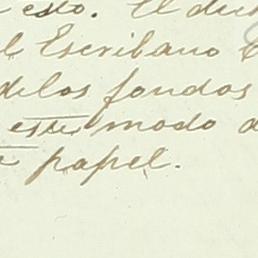 esto. El du
el Escribano
delos fondos
este modo d
papel.